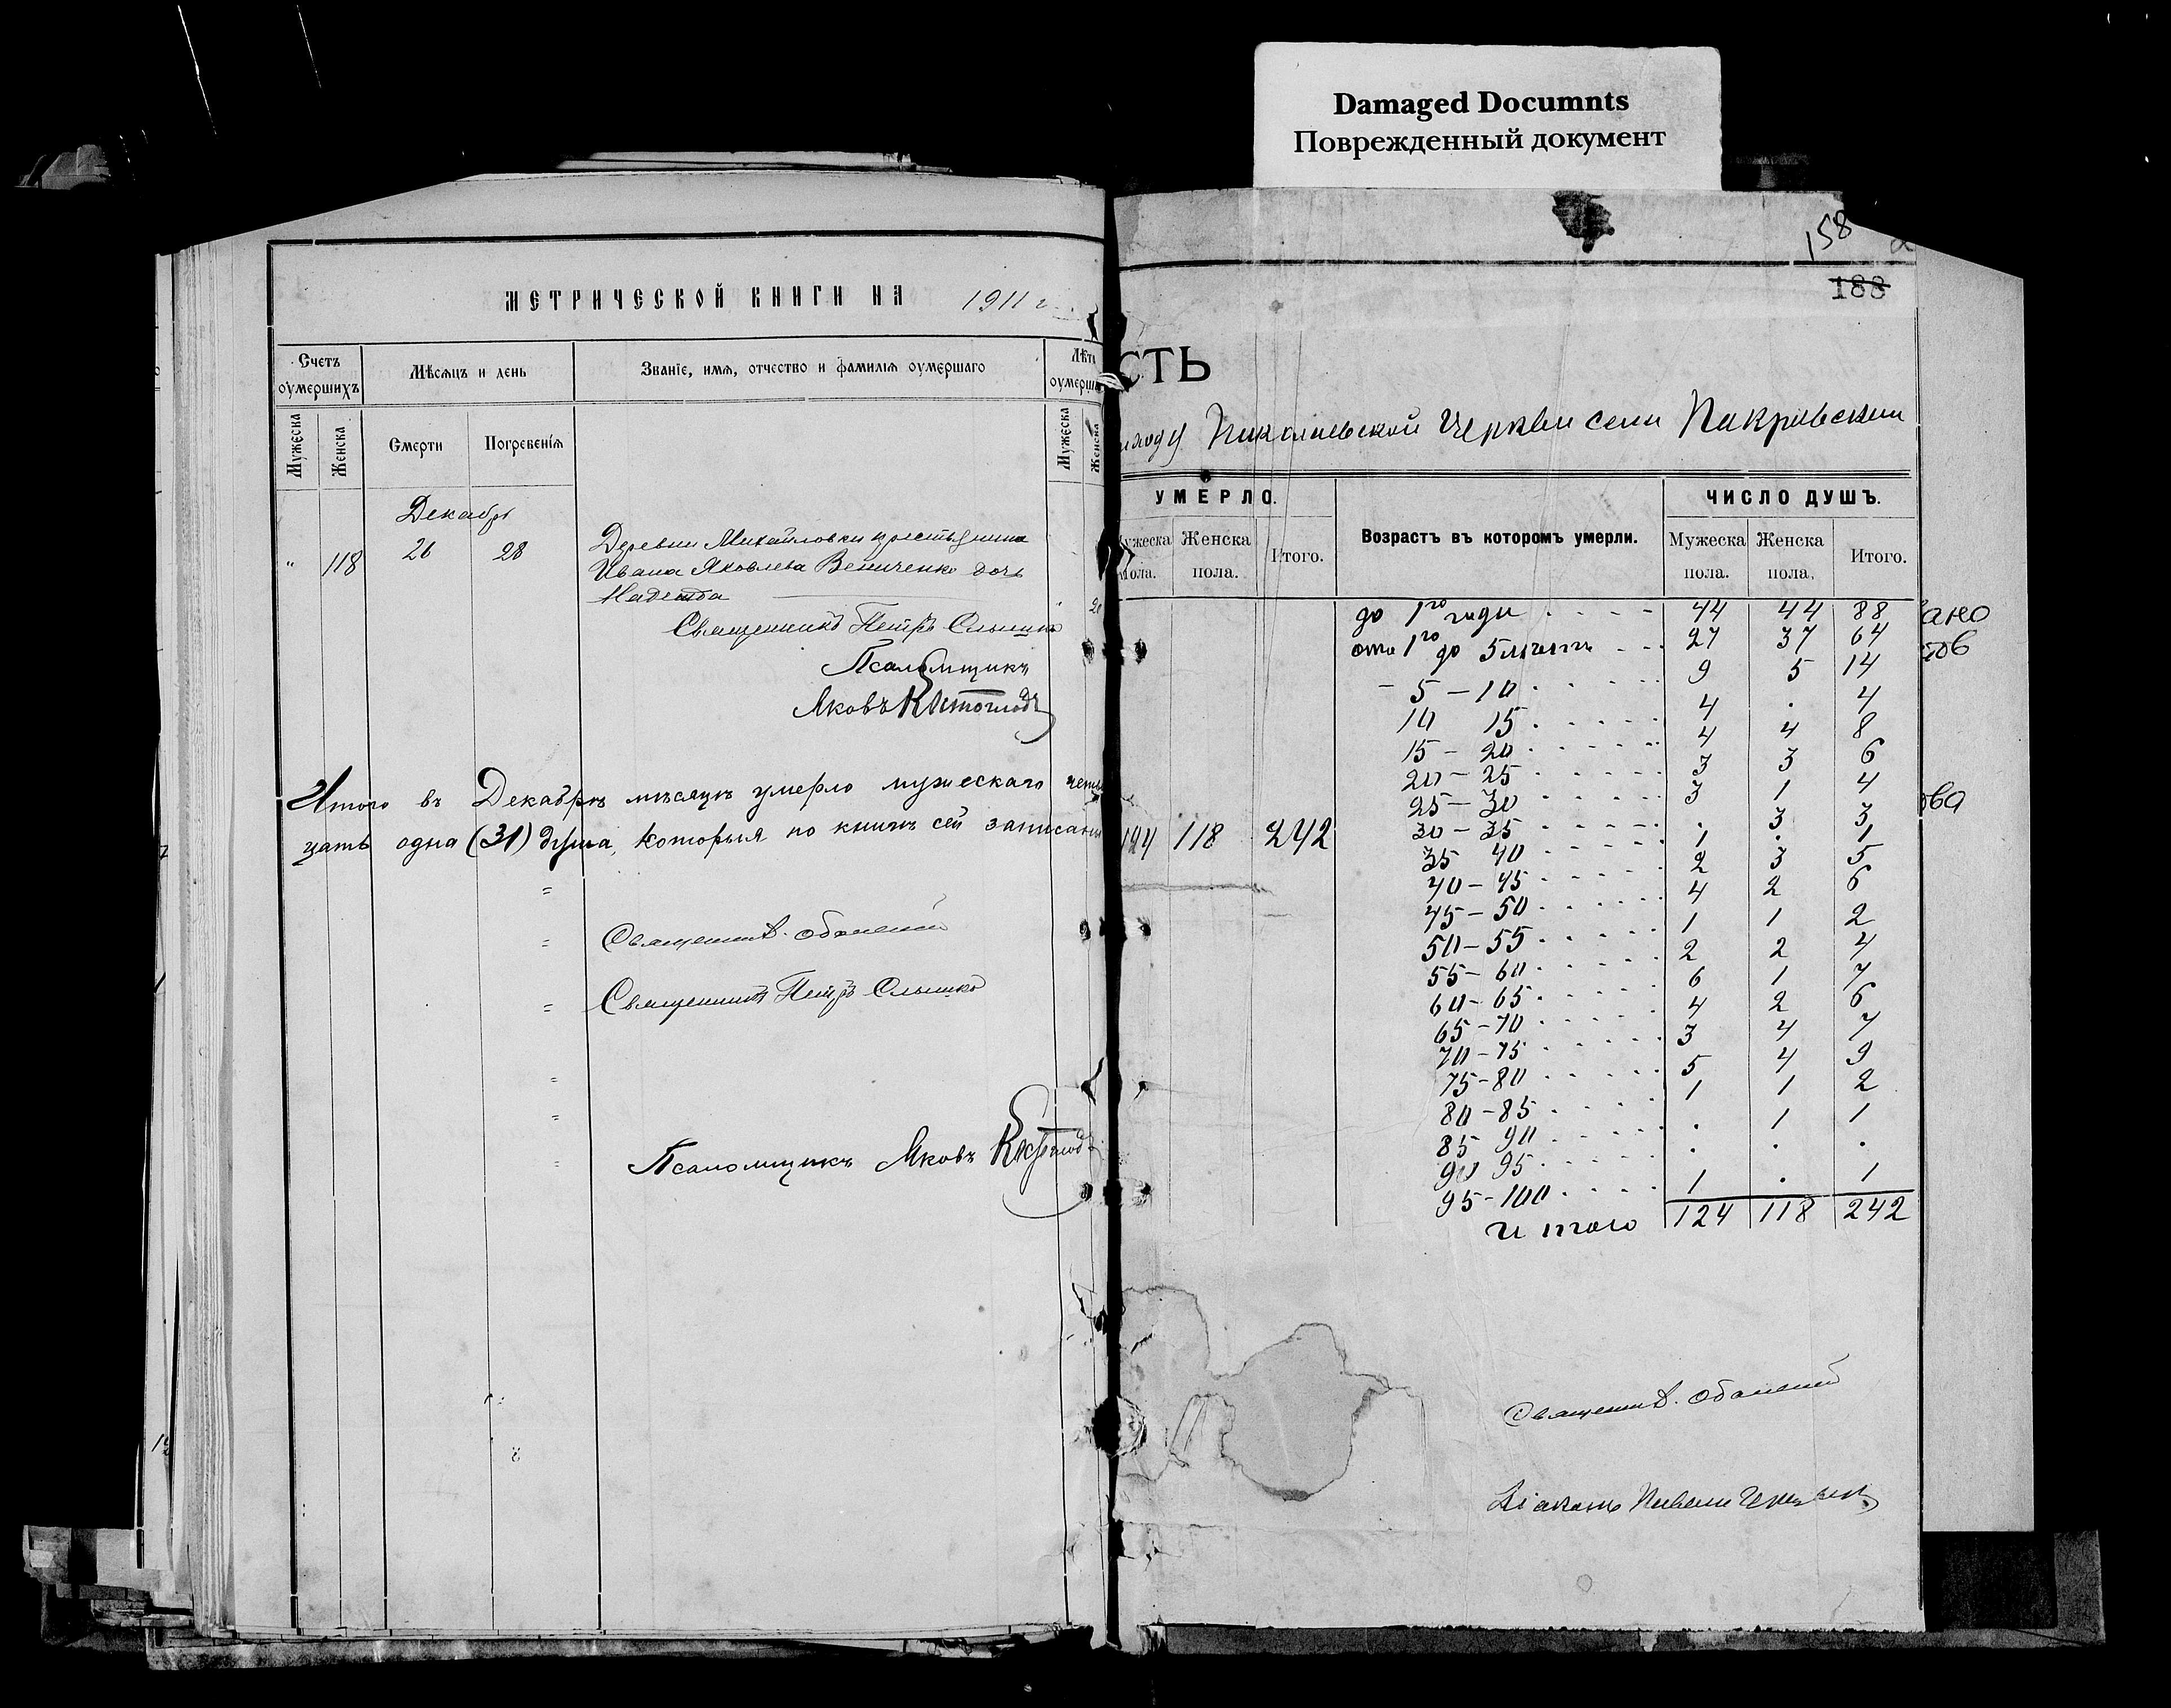 Damaged Documnts
Поврежденный документ
МЕТРИЧЕСКОЙ КНИГИ НА 1911 г
Счетъ оумершихъ
Мѣсяцъ и день
Званіе, имя, отчество и фамилія оумершаго
Лѣта оумерша
Мужеска
Женска
Смерти
Погребенія
Мужеска
Женска
Декабрь
" 118 26 28 Деревни Михайловки крестьянина
Ивана Яковлева Величенко дочь
Надежда
Священникъ Петръ Слышко
Псаломщикъ
Яковъ
Итого въ Декабрѣ мѣсяцѣ умерло мужескаго
цать одна (31) душа, которыя по книгѣ сей записаны
Священникъ
Священникъ Петръ Слышко
Псаломщикъ Яковъ
158
188
СТЬ
Николаевской Церкви села Покровскаго
УМЕРЛО.
Возрастъ въ которомъ умерли.
ЧИСЛО ДУШЪ.
Мужеска пола.
Женска пола.
Итого.
Мужеска пола.
Женска пола.
Итого.
124 118 242
до 1го года 44 44 88
отъ 1го до 5 лѣтъ 27 37 64
- 5 - 10 9 5 14
10 15 4 . 4
15 - 20 4 4 8
20 - 25 3 3 6
25 - 30 3 1 4
30 - 35 . 3 3
35 40 1 . 1
40 - 45 2 3 5
45 - 50 4 2 6
50 - 55 1 1 2
55 - 60 2 2 4
60 - 65 6 1 7
65 - 70 4 2 6
70 - 75 3 4 7
75 - 80 5 4 9
80 - 85 1 1 2
85 90 . 1 1
90 95 . . .
95 - 100 1 . 1
Итого 124 118 242
Священникъ
Діаконъ